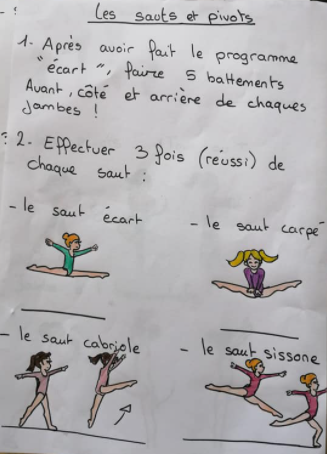 Les sauts et pivots
1- Après avoir fait le programme
"écart", faire 5 battements
Avant, côté et arrière de chaques
jambes !
2- Effectuer 3 fois (réussi) de
chaque saut :
- le saut écart
- le saut carpé
- le saut cabriole
- le saut sissone